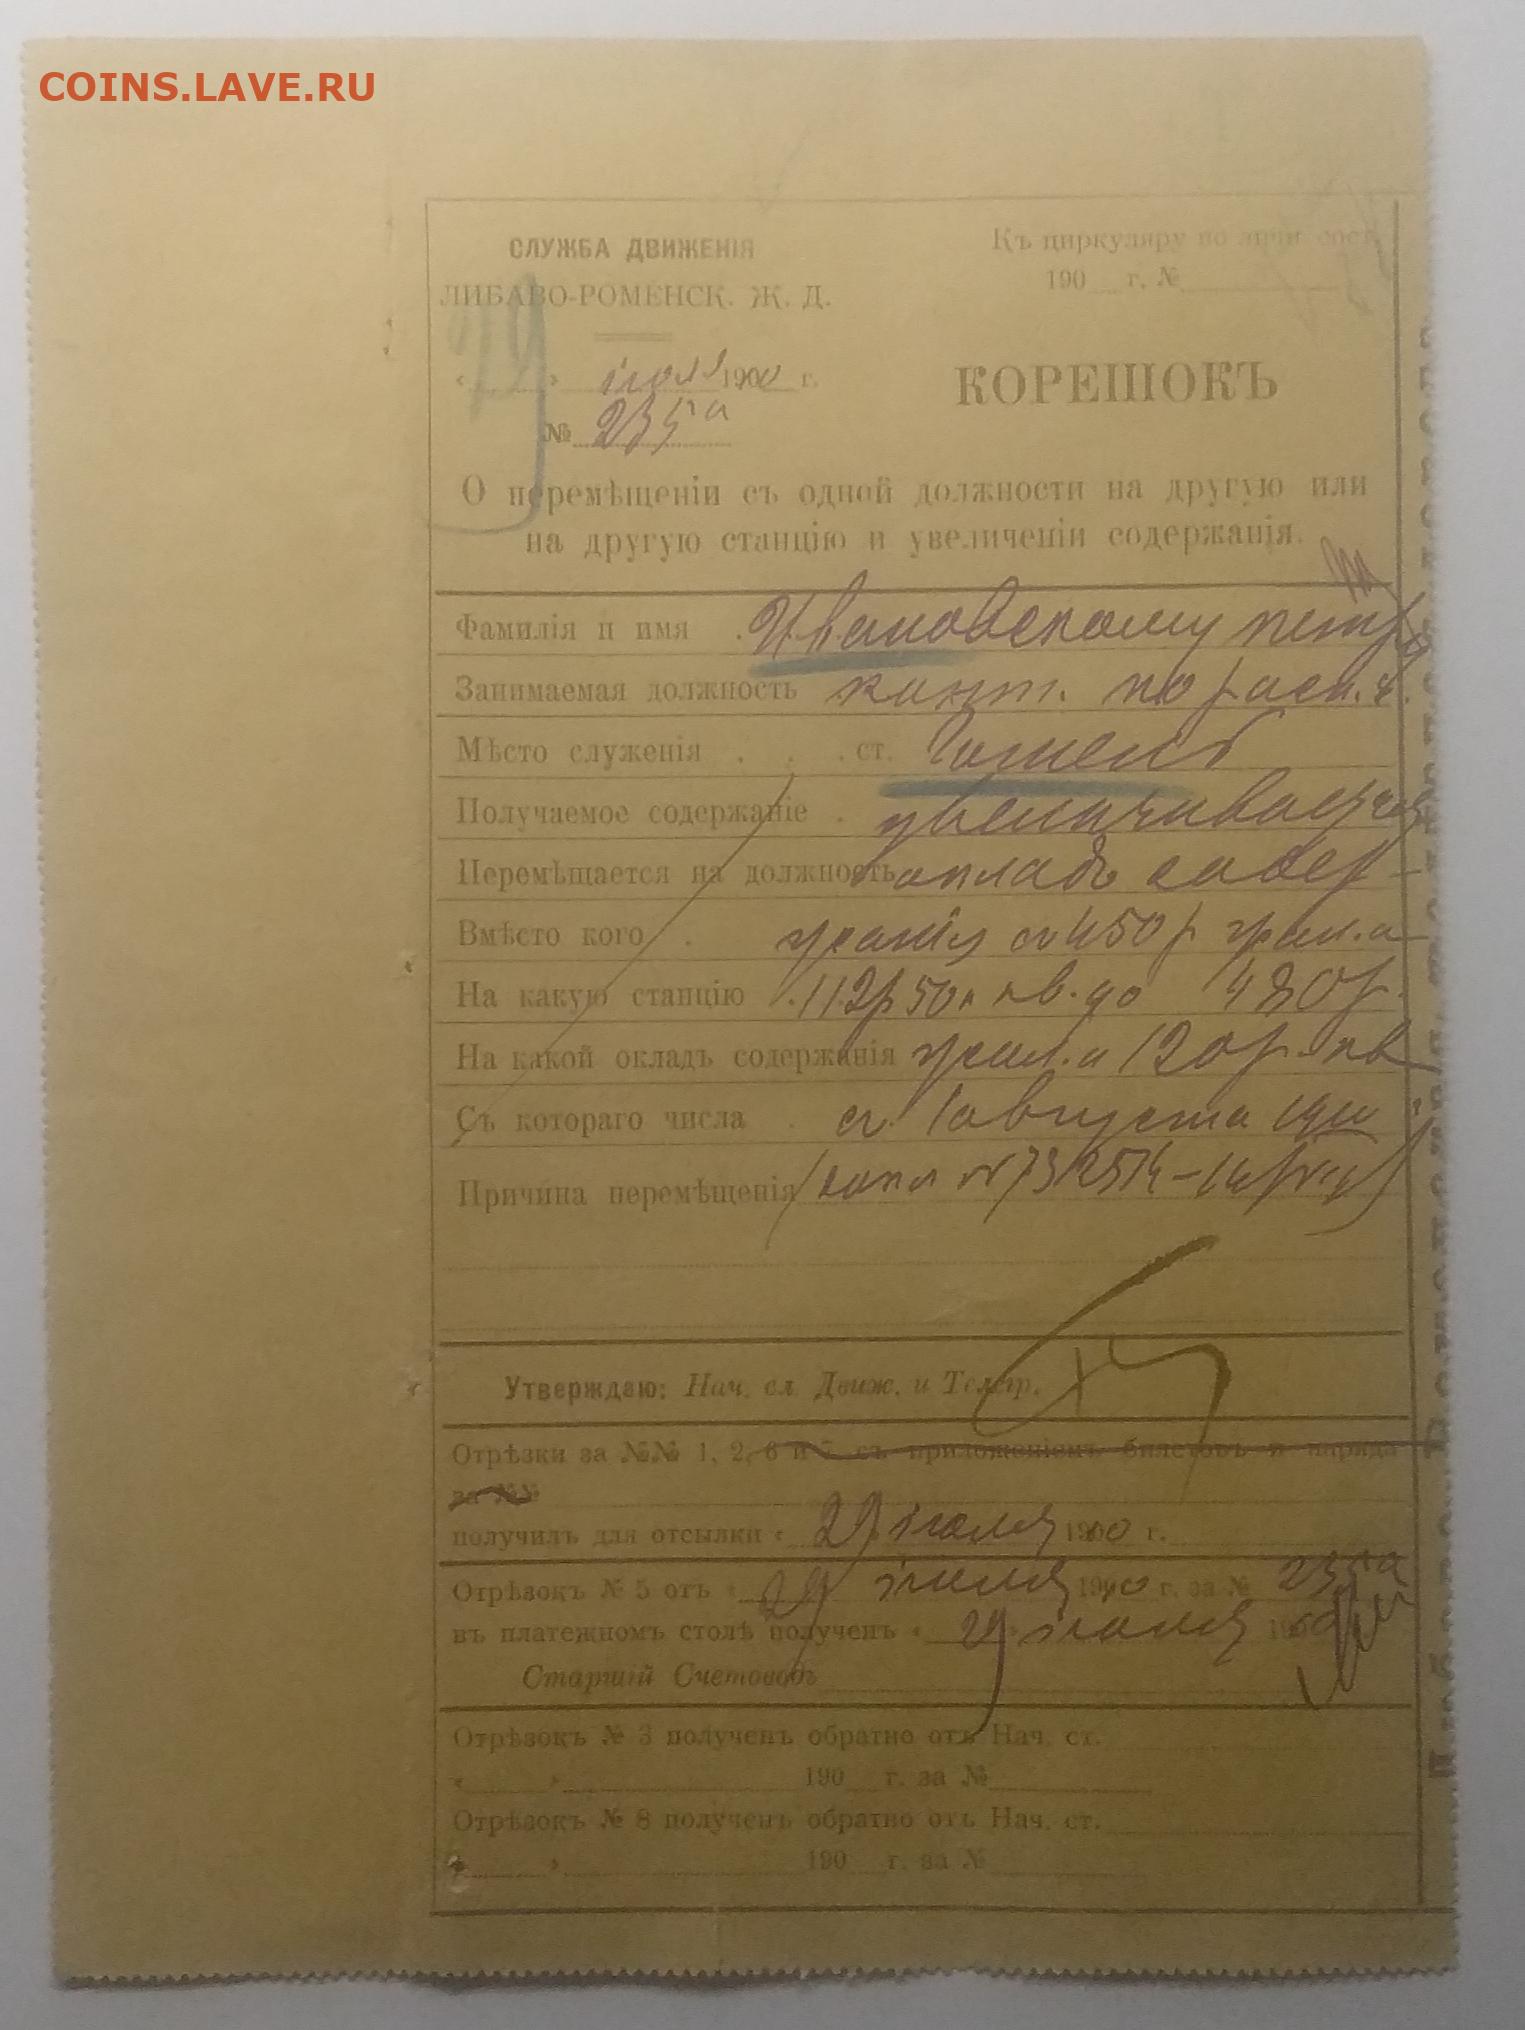 COINS.LAVE.RU
СЛУЖБА ДВИЖЕНІЯ
ЛИБАВО-РОМЕНСК. Ж. Д.
« » іюля 1900 г.
№ 235а
Къ циркуляру по личн. сост.
190 г. №
КОРЕШОКЪ
О перемѣщеніи съ одной должности на другую или
на другую станцію и увеличеніи содержанія.
Фамилія и имя . Ивановскому Петру
Занимаемая должность конт. по расп. ч.
Мѣсто служенія . . . ст. Гомель
Получаемое содержаніе . увеличивается
Перемѣщается на должность окладъ содер-
Вмѣсто кого . жанія съ 450 р
На какую станцію . 112р 50к кв. до 480р.
На какой окладъ содержанія 120р. кв
Съ котораго числа . съ 1 августа 1910
Причина перемѣщенія
Утверждаю: Нач. сл. Движ. и Телегр.
Отрѣзки за №№ 1, 2, 6 и 7 съ приложеніемъ билетовъ и наряда
за №№
получилъ для отсылки « 29 іюля 1910 г.
Отрѣзокъ № 5 отъ « 29 іюля 1910 г. за № 235а
въ платежномъ столѣ полученъ « 29 » іюля 1910
Старшій Счетоводъ
Отрѣзокъ № 3 полученъ обратно отъ Нач. ст.
« » 190 г. за №
Отрѣзокъ № 8 полученъ обратно отъ Нач. ст.
« » 190 г. за №